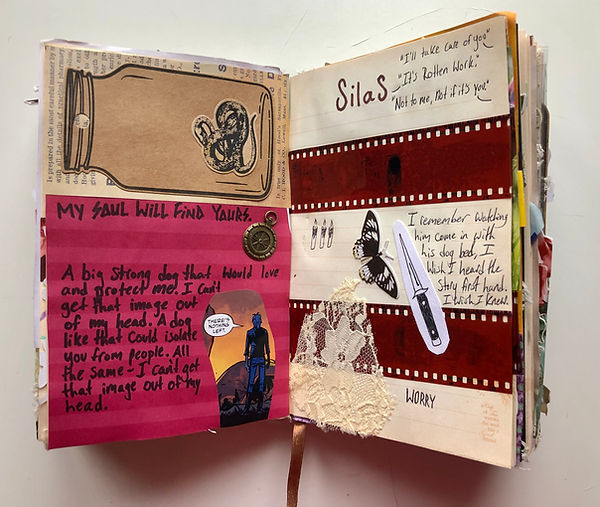 Is prepared in the most careful manner by
MY SOUL WILL FIND YOURS.
A big strong dog that would love
and protect me. I can't
get that image out
of my head. A dog
like that could isolate
you from people. All
the same - I can't get
that image out of my
head.
THERE'S
NOTHING
LEFT.
Silas
"I'll take care of you"
"It's Rotten Work."
"Not to me, Not if it's you"
I remember watching
him come in with
his dog bed, I
wish I heard the
story first hand.
I wish I knew.
WORRY